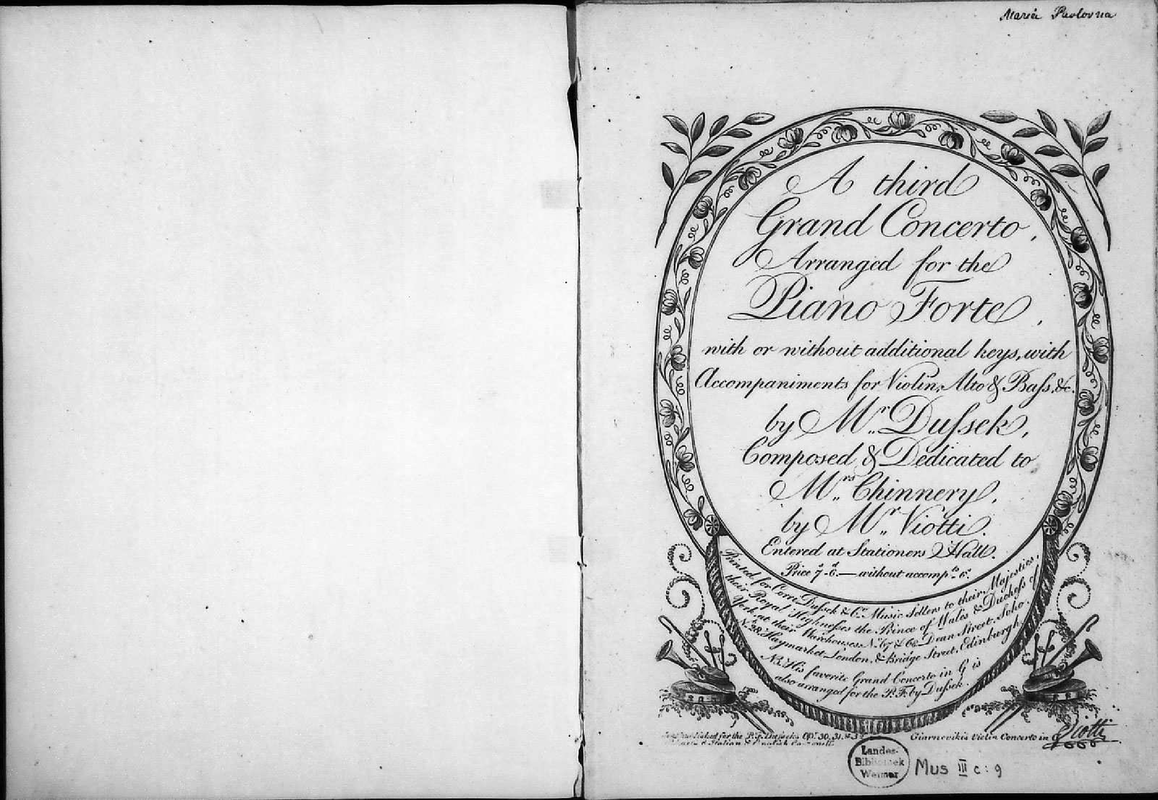 Maria Pavlovna
A third
Grand Concerto,
Arranged for the
Piano Forte,
with or without additional keys, with
Accompaniments for Violin, Alto & Baſs, &c.
by Mr. Duſsek,
Composed & Dedicated to
Mrs. Chinnery,
by Mr. Viotti.
Entered at Stationers Hall.
Price 7s-6d.— without accompts. 6s.
Printed for Corri, Duſsek & Co. Music Sellers to their Majesties,
their Royal Highneſses the Prince of Wales & Dutcheſs of
York at their Warehouses No. 67 & 68 Dean Street, Soho
No. 28 Haymarket London, & Bridge Street, Edinburgh.
NB. His favorite Grand Concerto in G is
also arranged for the P.F. by Duſsek.
published for the P.F. Duſsek's Op. 30, 31,
Giarnovikis Violin Concerto in
Italian & English
Viotti
Landes-
Bibliothek
Weimar
Mus III c: 9